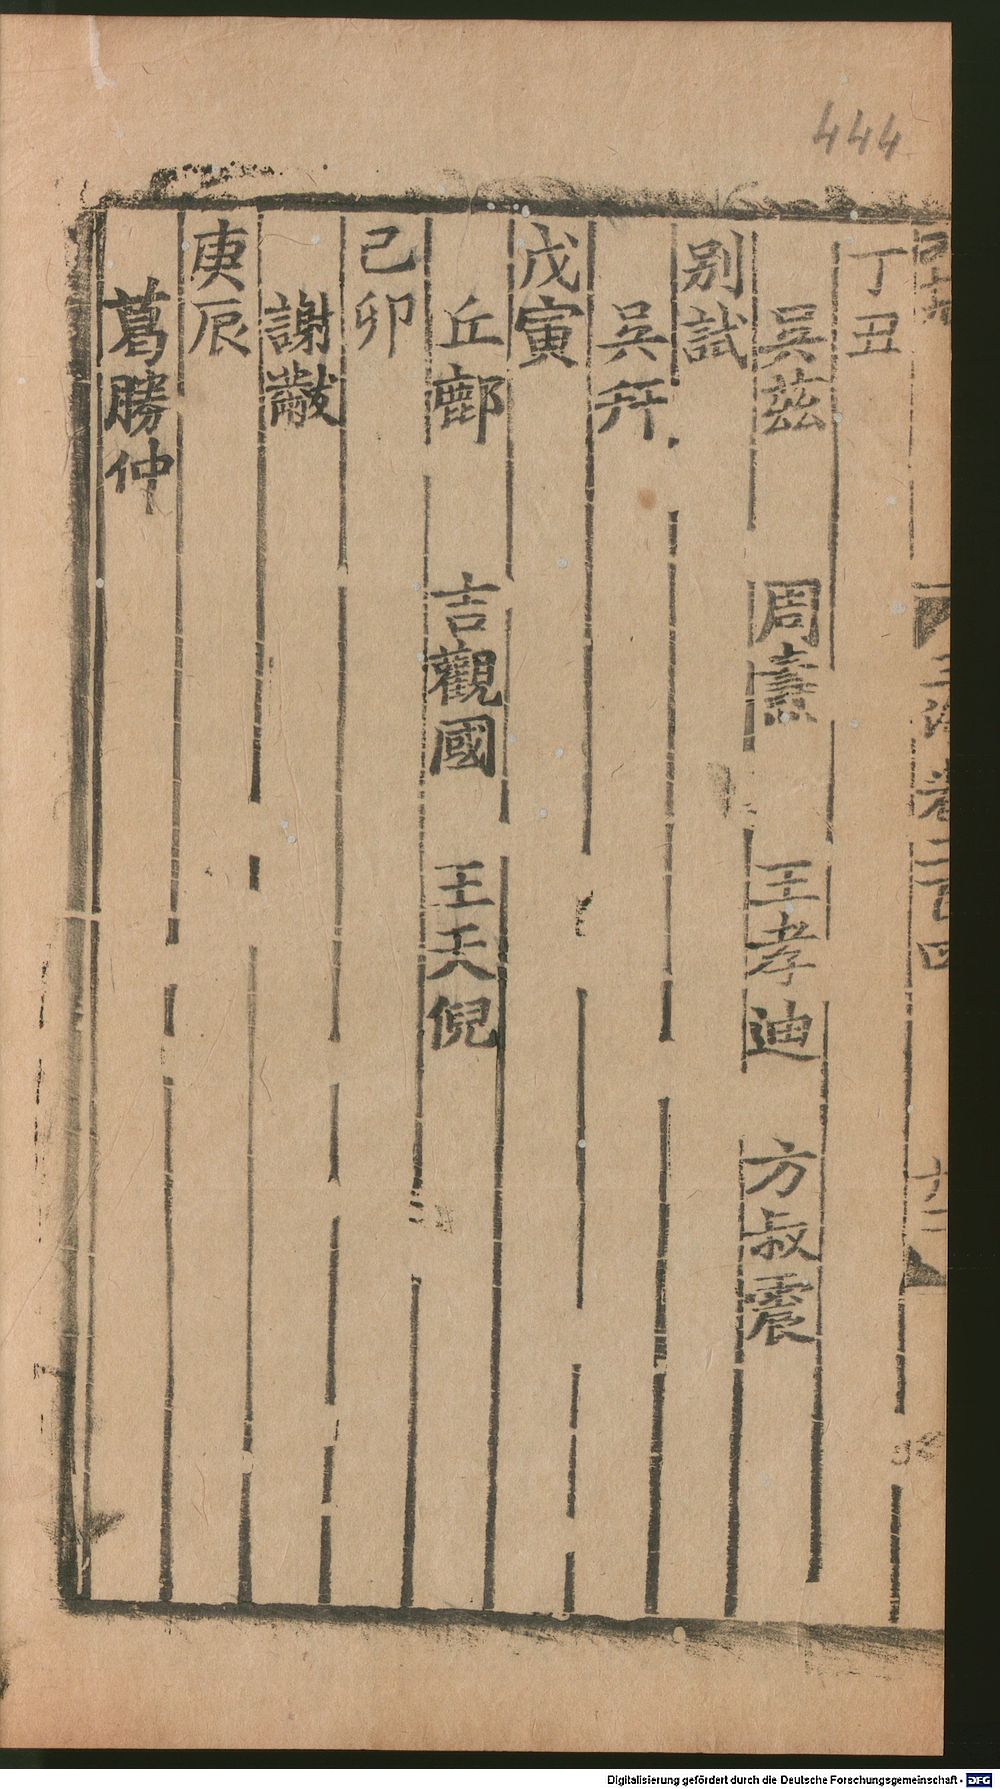 444
玉海卷二百四
十二
丁丑
吳茲 周燾 王孝迪 方叔震
别試
吳幵
戊寅
丘鄜 吉觀國 王天倪
己卯
謝黻
庚辰
葛勝仲
Digitalisierung gefördert durch die Deutsche Forschungsgemeinschaft - DFG